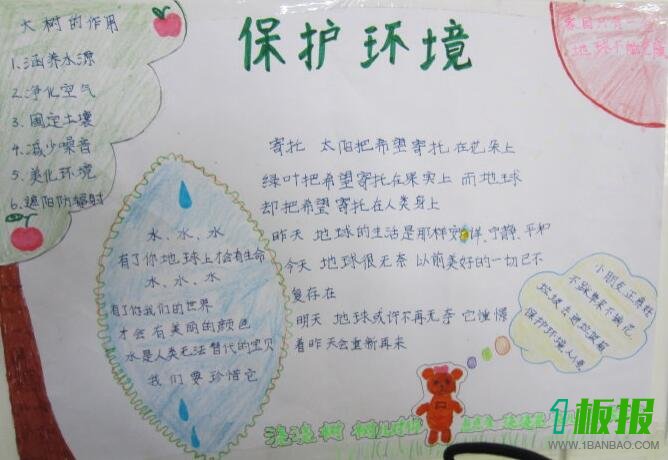 保护环境
大树的作用
1.涵养水源
2.净化空气
3.固定土壤
4.减少噪音
5.美化环境
6.遮阳防辐射
家园只有一
地球不能
寄托 太阳把希望寄托在花朵上
绿叶把希望寄托在果实上 而地球
却把希望寄托在人类身上
昨天 地球的生活是那样 宁静、平和
今天 地球很无奈 以前美好的一切已不
复存在
明天 地球或许不再无奈 它憧憬
着昨天会重新再来
水、水、水
有了你地球上才会有生命
水、水、水
有了你我们的世界
才会有美丽的颜色
水是人类无法替代的宝贝
我们要珍惜它
小朋友正真好
不踩 不摘花
垃圾
保护环境人人
浇浇树
1板报
WWW.1BANBAO.COM